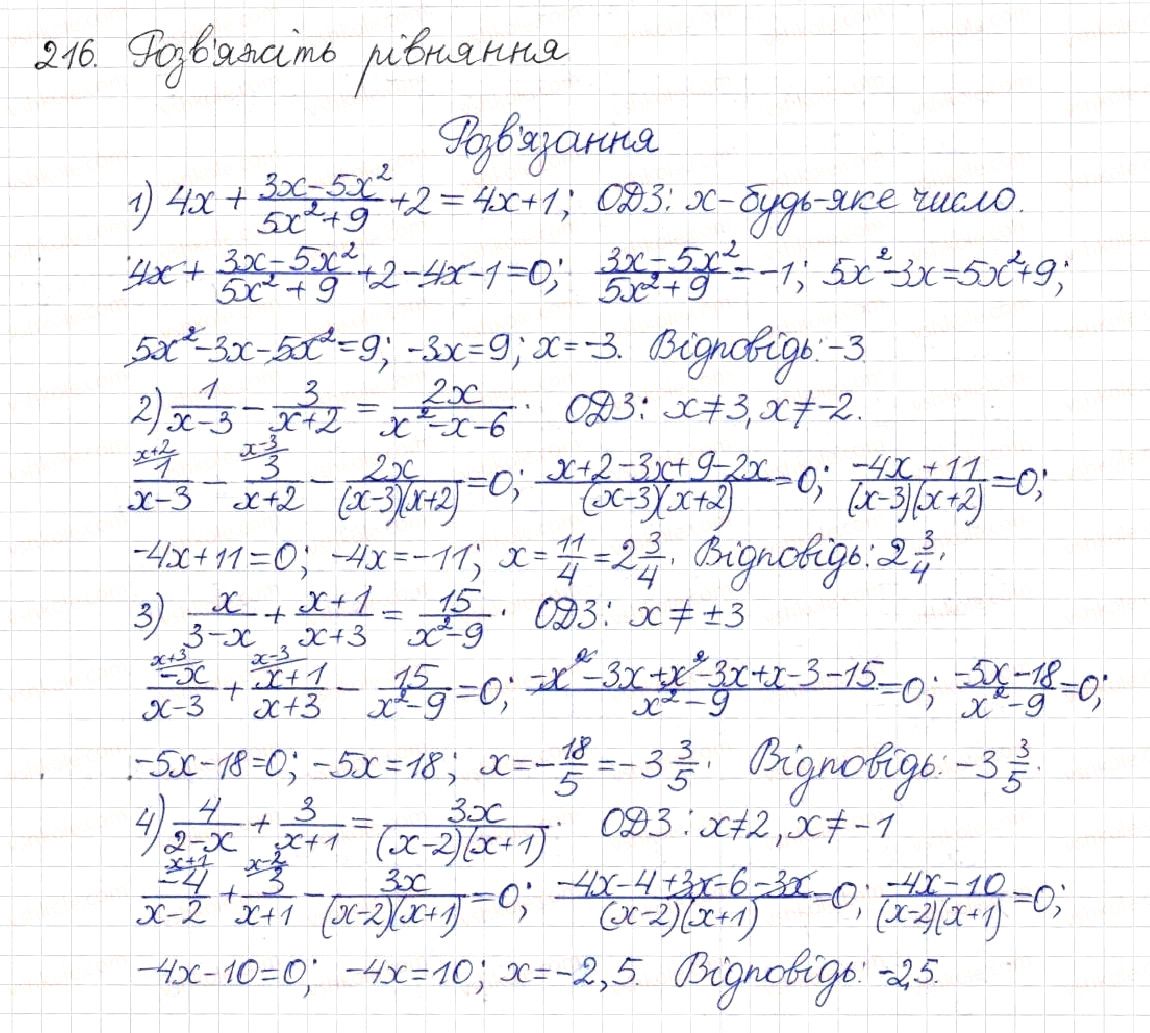 216. Розв'яжіть рівняння
Розв'язання
1) 4x + (3x-5x²)/(5x²+9) + 2 = 4x+1; ОДЗ: x - будь-яке число.
4x + (3x-5x²)/(5x²+9) + 2 - 4x - 1 = 0; (3x-5x²)/(5x²+9) = -1; 5x²-3x = 5x²+9;
5x²-3x-5x²=9; -3x=9; x=-3. Відповідь: -3
2) 1/(x-3) - 3/(x+2) = 2x/(x²-x-6). ОДЗ: x≠3, x≠-2.
x+2/ 1/(x-3) - x-3/ 3/(x+2) - 2x/((x-3)(x+2)) = 0; (x+2-3x+9-2x)/((x-3)(x+2)) = 0; (-4x+11)/((x-3)(x+2)) = 0;
-4x+11=0; -4x=-11; x = 11/4 = 2 3/4. Відповідь: 2 3/4.
3) x/(3-x) + (x+1)/(x+3) = 15/(x²-9). ОДЗ: x ≠ ±3
x+3/ -x/(x-3) + x-3/ (x+1)/(x+3) - 15/(x²-9) = 0; (-x²-3x+x²-3x+x-3-15)/(x²-9) = 0; (-5x-18)/(x²-9) = 0;
-5x-18=0; -5x=18; x = -18/5 = -3 3/5. Відповідь: -3 3/5.
4) 4/(2-x) + 3/(x+1) = 3x/((x-2)(x+1)). ОДЗ: x≠2, x≠-1
x+1/ -4/(x-2) + x-2/ 3/(x+1) - 3x/((x-2)(x+1)) = 0; (-4x-4+3x-6-3x)/((x-2)(x+1)) = 0; (-4x-10)/((x-2)(x+1)) = 0;
-4x-10=0; -4x=10; x=-2,5. Відповідь: -2,5.